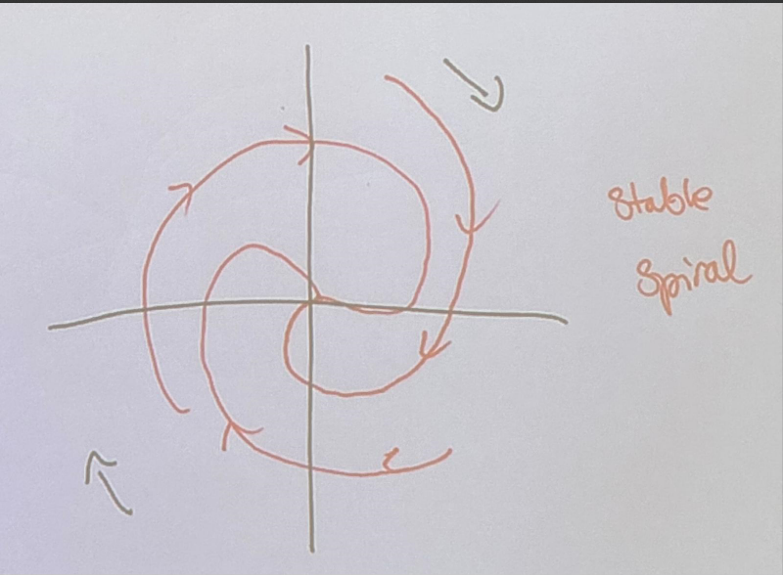 Stable
Spiral